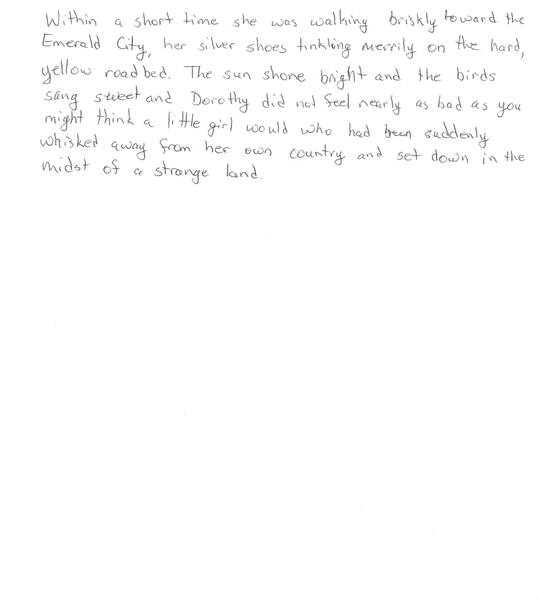 Within a short time she was walking briskly toward the
Emerald City, her silver shoes tinkling merrily on the hard,
yellow roadbed. The sun shone bright and the birds
sang sweet and Dorothy did not feel nearly as bad as you
might think a little girl would who had been suddenly
whisked away from her own country and set down in the
midst of a strange land.